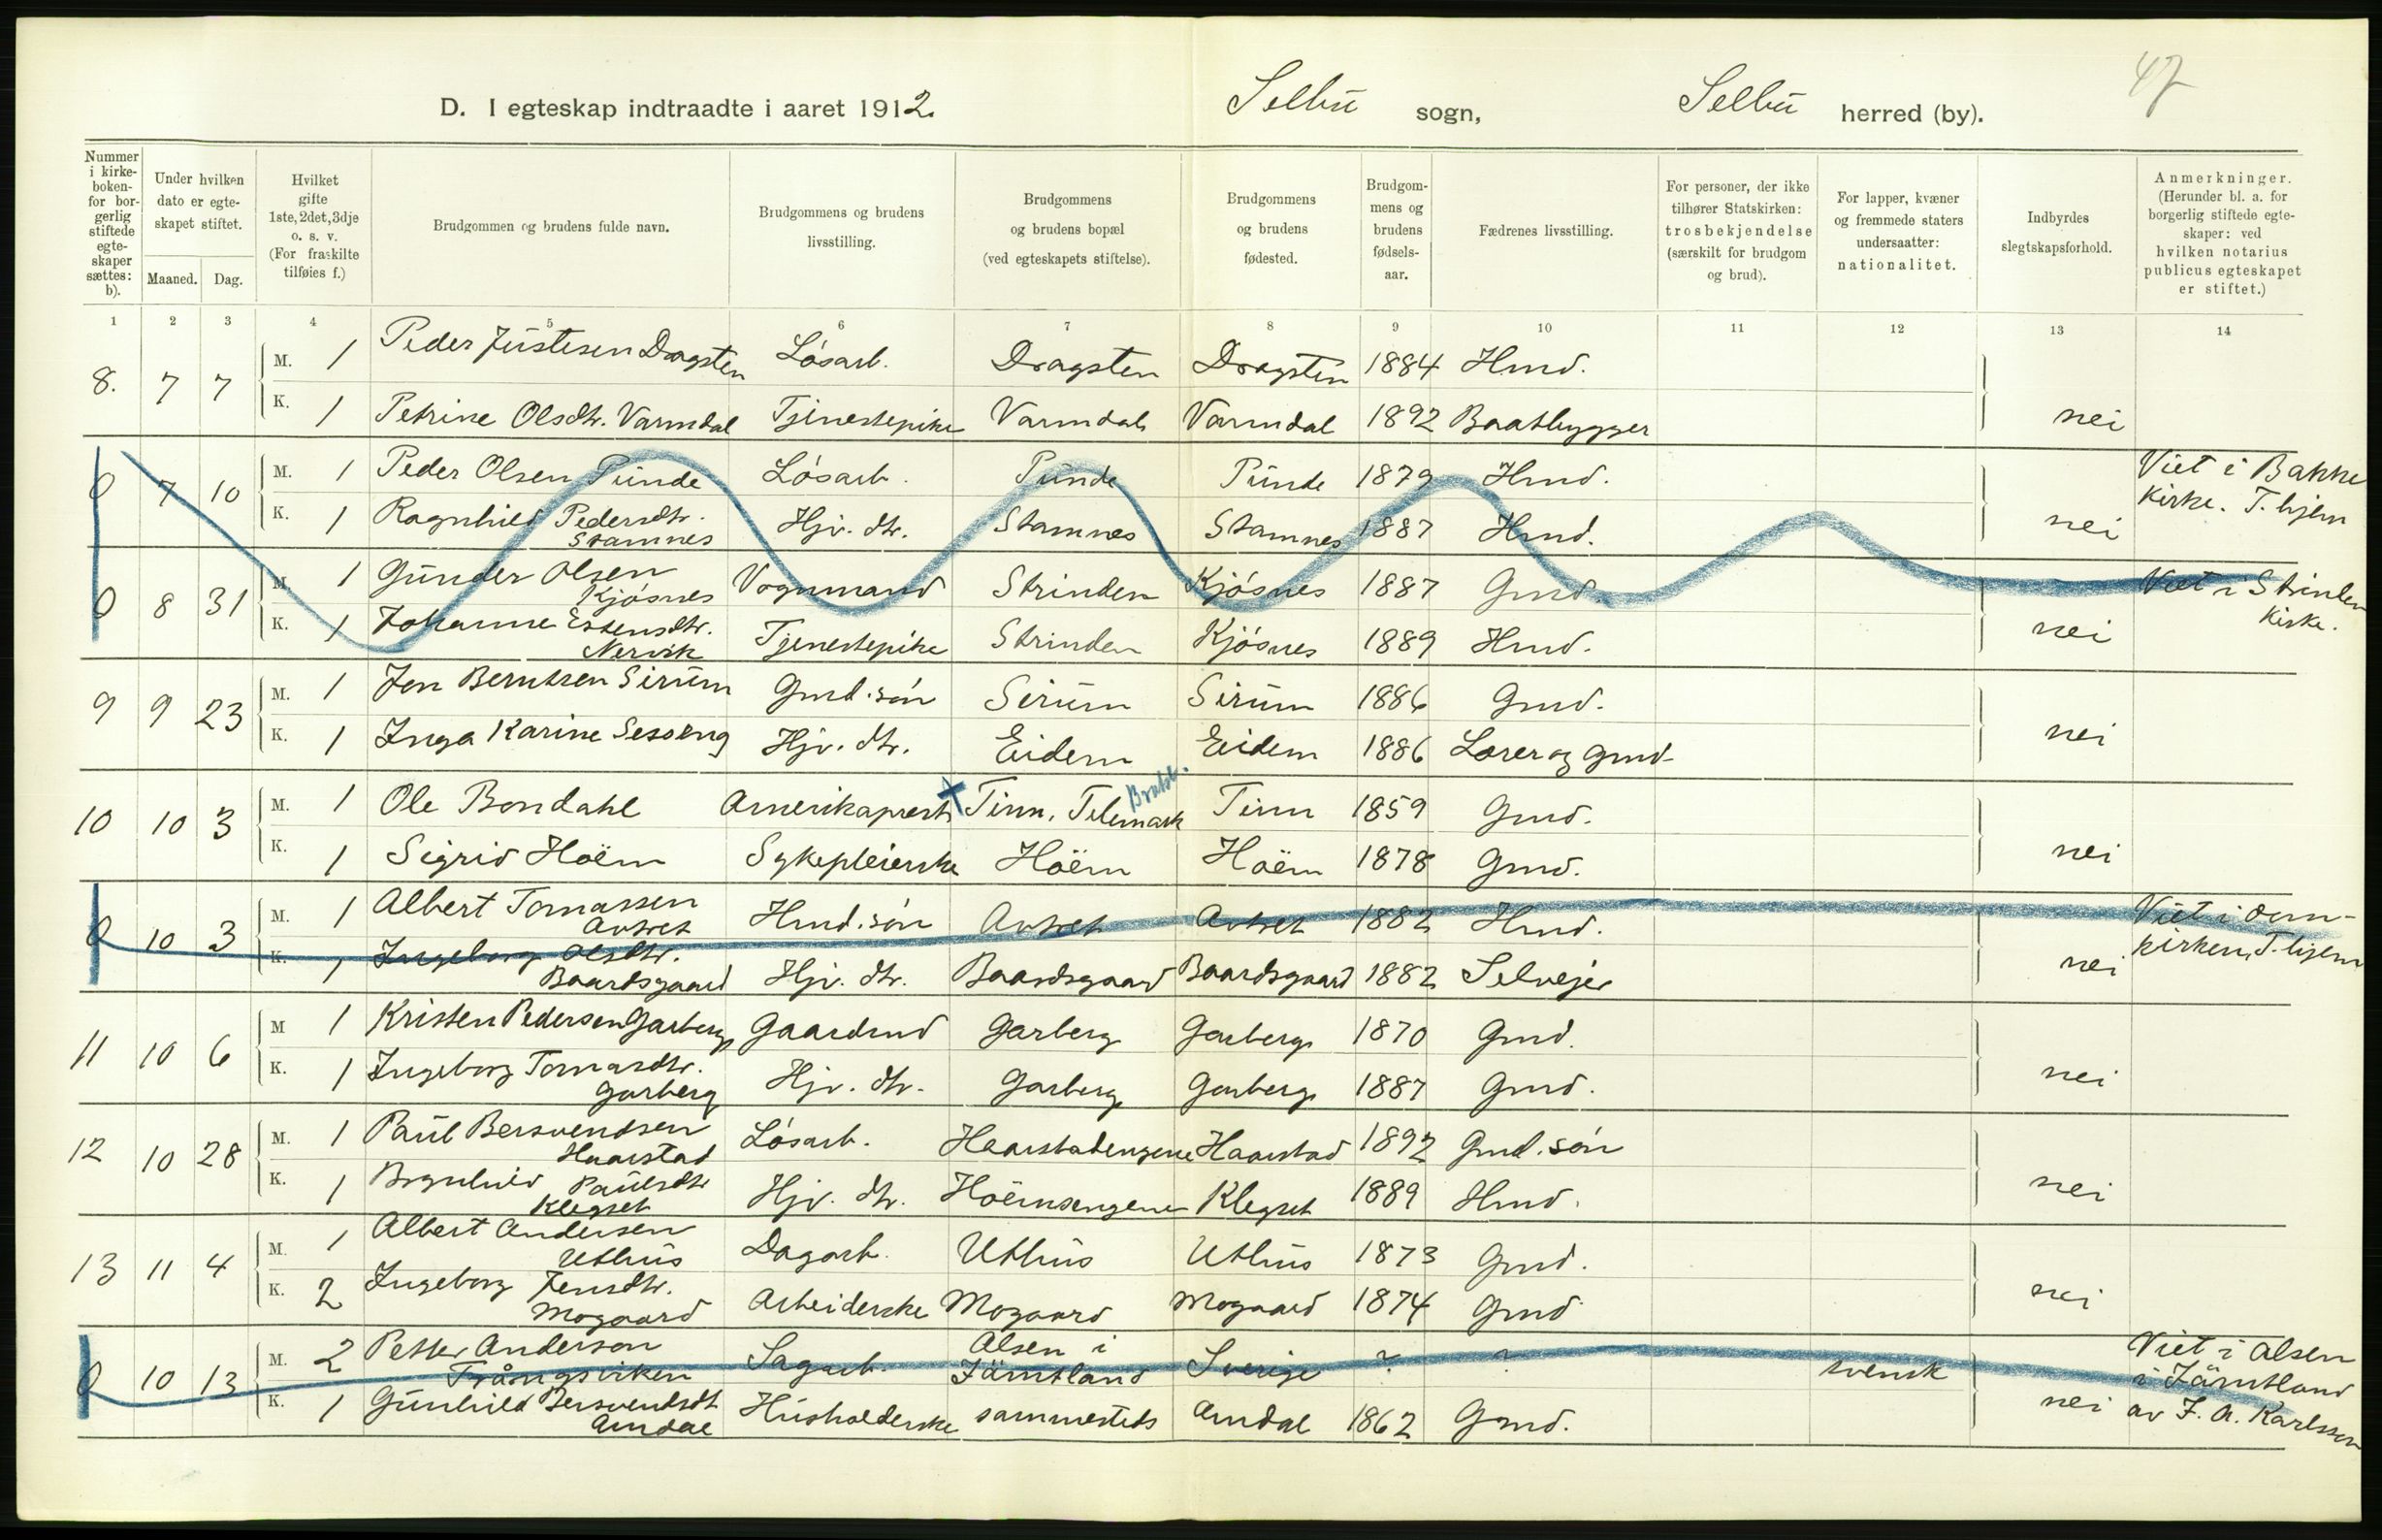 47
D. I egteskap indtraadte i aaret 1912. Selbu sogn, Selbu herred (by).
Nummer i kirkeboken- for borgerlig stiftede egteskaper sættes: b).
Under hvilken dato er egteskapet stiftet.
Maaned. Dag.
Hvilket gifte 1ste, 2det, 3dje o. s. v. (For fraskilte tilføies f.)
Brudgommen og brudens fulde navn.
Brudgommens og brudens livsstilling.
Brudgommens og brudens bopæl (ved egteskapets stiftelse).
Brudgommens og brudens fødested.
Brudgommens og brudens fødselsaar.
Fædrenes livsstilling.
For personer, der ikke tilhører Statskirken: trosbekjendelse (særskilt for brudgom og brud).
For lapper, kvæner og fremmede staters undersaatter: nationalitet.
Indbyrdes slegtskapsforhold.
Anmerkninger. (Herunder bl. a. for borgerlig stiftede egteskaper: ved hvilken notarius publicus egteskapet er stiftet.)
1 2 3 4 5 6 7 8 9 10 11 12 13 14
8. 7 7 M. 1 Peder Justesen Dragsten Løsarb. Dragsten Dragsten 1884 Hmd.
K. 1 Petrine Olsdtr. Varmdal Tjenestepike Varmdal Varmdal 1892 Baatbygger nei
0 7 10 M. 1 Peder Olsen Punde Løsarb. Punde Punde 1879 Hmd. Viet i Bakke
kirke. T.hjem
K. 1 Ragnhild Pedersdtr. Stamnes Hjv. dtr. Stamnes Stamnes 1887 Hmd. nei
0 8 31 M. 1 Gunder Olsen Kjøsnes Vognmand Strinden Kjøsnes 1887 Gmd. Viet i Strinden
kirke.
K. 1 Johanne Estensdtr. Nervik Tjenestepike Strinden Kjøsnes 1889 Hmd. nei
9 9 23 M. 1 Jon Berntsen Sirum Gmd. søn Sirum Sirum 1886 Gmd.
K. 1 Inga Karine Sesseng Hjv. dtr. Eidem Eidem 1886 Lærer og gmd. nei
10 10 3 M. 1 Ole Bondahl Amerikaprest Tinn, Telemark Tinn 1859 Gmd.
K. 1 Sigrid Hoëm Sykepleierske Hoëm Hoëm 1878 Gmd. nei
0 10 3 M. 1 Albert Tomassen Avtret Hmd. søn Avtret Avtret 1882 Hmd. Viet i Dom-
kirken, T.hjem
K. 1 Ingeborg Olsdtr. Baardsgaard Hjv. dtr. Baardsgaard Baardsgaard 1882 Selveier nei
11 10 6 M 1 Kristen Pedersen Garberg Gaardmd Garberg Garberg 1870 Gmd.
K. 1 Ingeborg Tomasdtr. Garberg Hjv. dtr. Garberg Garberg 1887 Gmd. nei
12 10 28 M. 1 Paul Bersvendsen Haarstad Løsarb. Haarstadengene Haarstad 1892 Gmd. søn
K. 1 Paulsdtr Klegset Hjv. dtr. Hoëmsengene Klegset 1889 Hmd. nei
13 11 4 M. 1 Albert Andersen Uthus Dagarb. Uthus Uthus 1873 Gmd.
K. 2 Ingeborg Jensdtr. Mogaard Arbeiderske Mogaard Mogaard 1874 Gmd nei
0 10 13 M. 2 Petter Anderson Trångsviken Sagarb. Alsen i Jämtland Sverige ? ? svensk Viet i Alsen
i Jämtland
av J. A. Karlsson
K. 1 Gunhild Bersvendsdt Amdal Husholderske sammesteds Amdal 1862 Gmd. nei